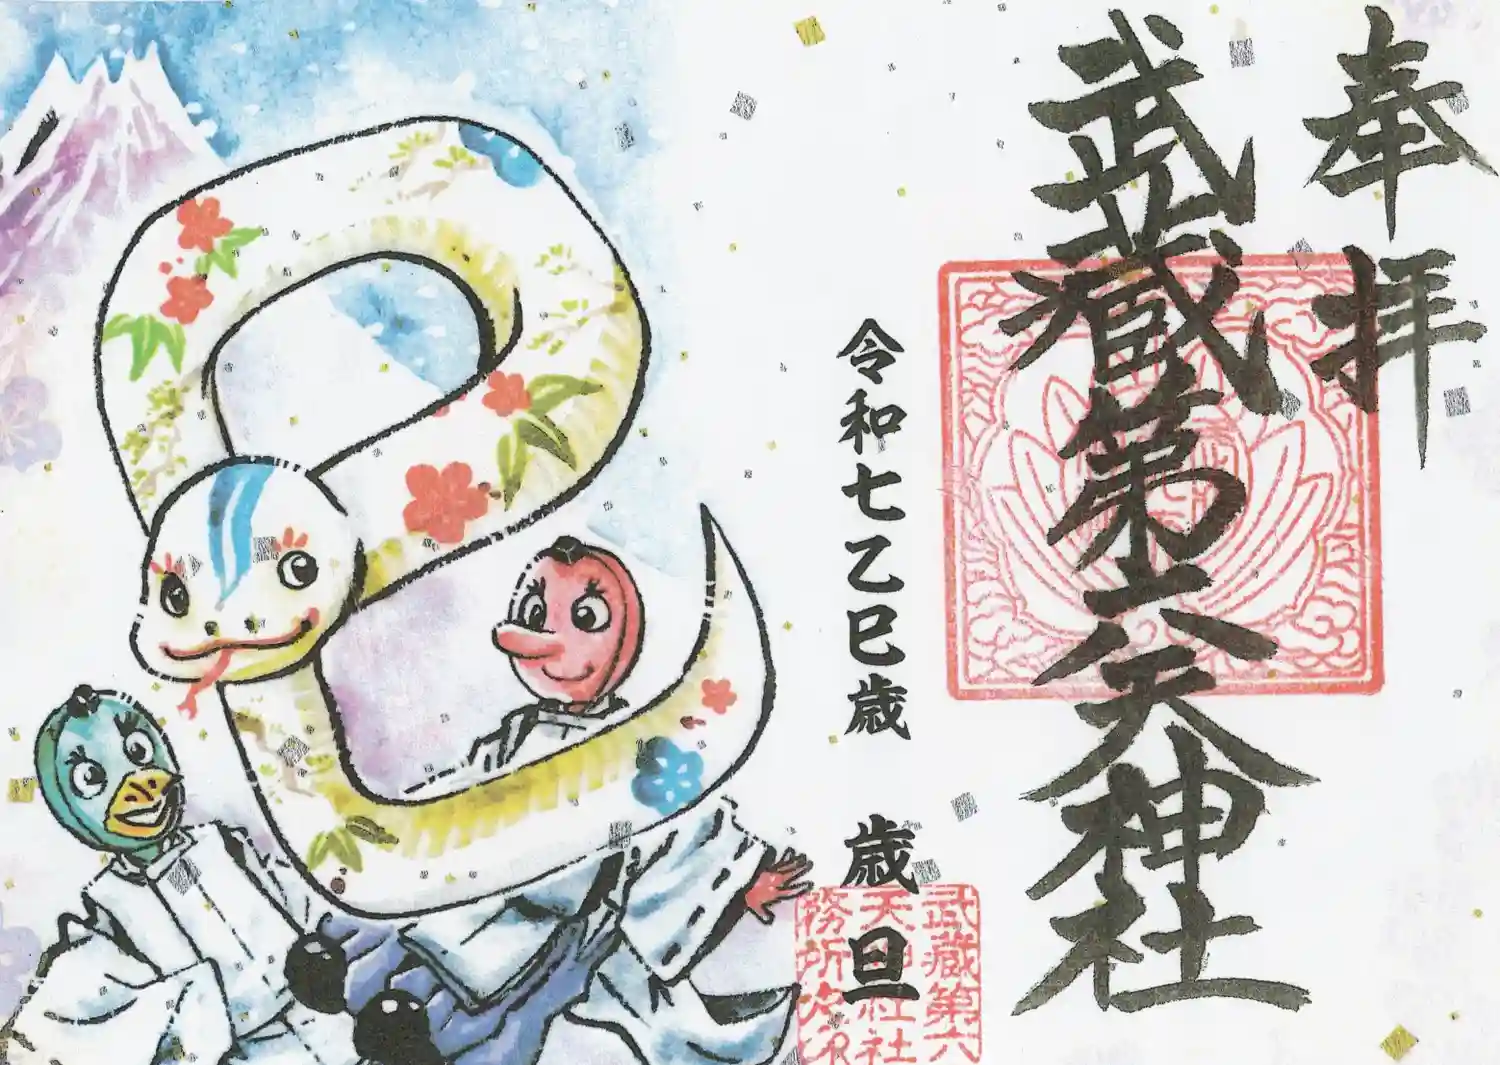 奉拝
武蔵第六天神社
令和七乙巳歳 歳旦
武蔵第六
天神社社
務所之印